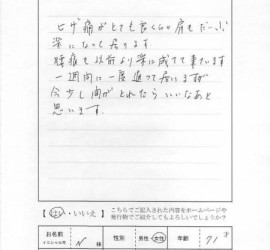 ヒザ痛がとても良くなり肩もだいぶ
楽になって居ります
腰痛も以前より楽に成って来ています
一週間に一度通って居いますが
今少し間がとれたらいいなあと
思います.
【はい・いいえ】
こちらでご記入された内容をホームページや
発行物でご紹介してもよろしいでしょうか?
お名前
イニシャル可
N 様
性別
男性・女性
年齢
71才